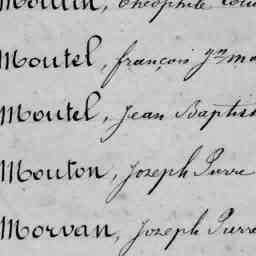 Théophile
Moutel, françois
Moutel, Jean Baptis
Mouton, Joseph Pierre
Morvan, Joseph Pierre